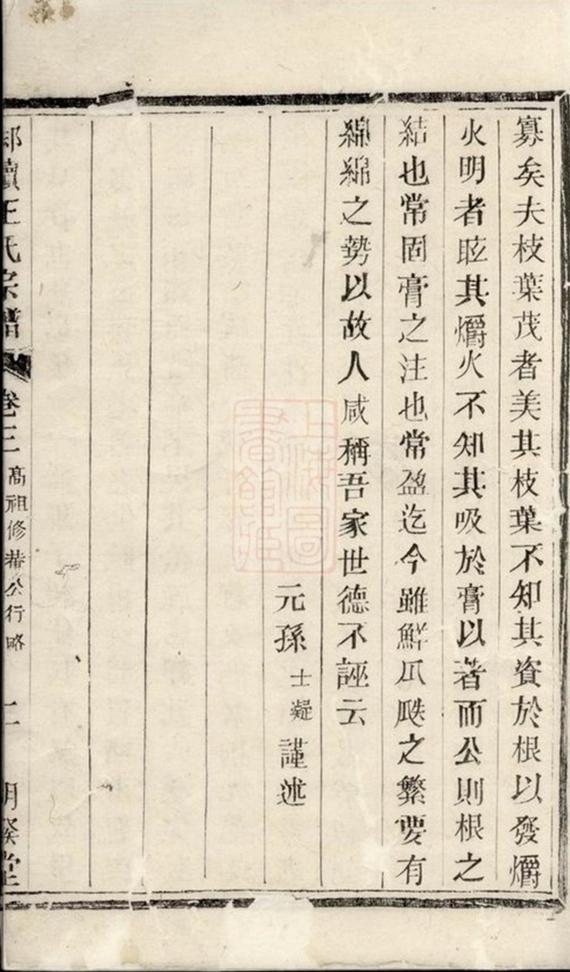 寡矣夫枝葉茂者美其枝葉不知其資於根以發爝
火明者眩其爝火不知其吸於膏以著而公則根之
結也常固膏之注也常盈迄今雖鮮瓜瓞之繁要有
綿綿之勢以故人咸稱吾家世德不誣云
元孫士凝謹述
王氏宗譜
卷三 高祖修菴公行略
二